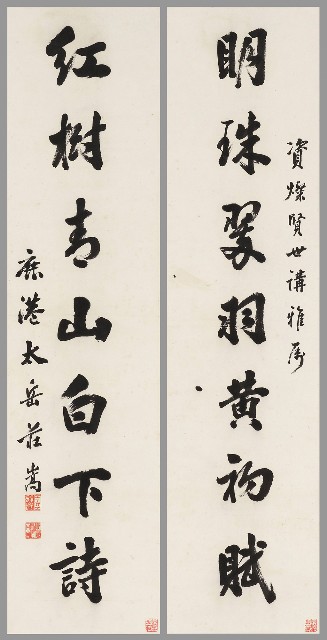 資燦賢世講雅屬
明珠翠羽黃初賦
紅樹青山白下詩
鹿港太岳莊嵩